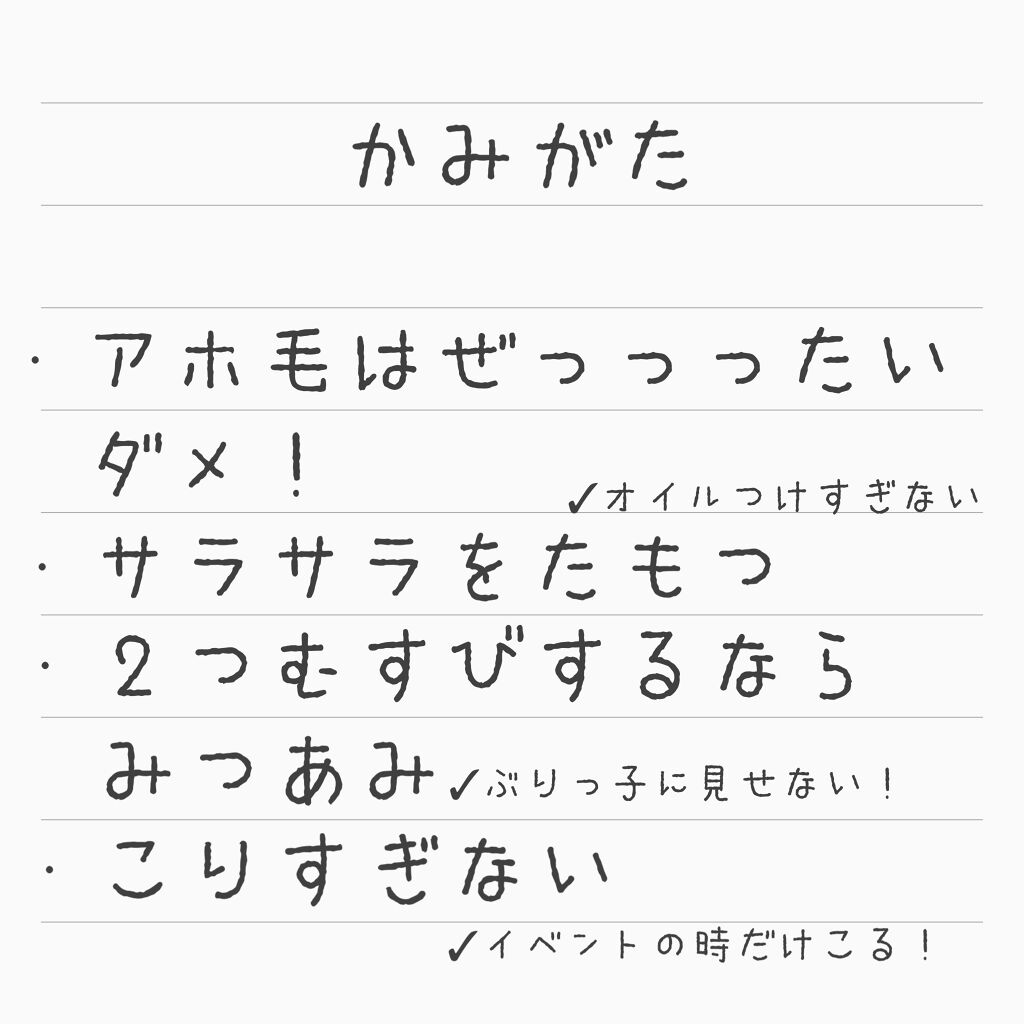 かみがた
・アホ毛はぜっっったい
ダメ！
✓オイルつけすぎない
・サラサラをたもつ
・2つむすびするなら
みつあみ✓ぶりっ子に見せない！
・こりすぎない
✓イベントの時だけこる！